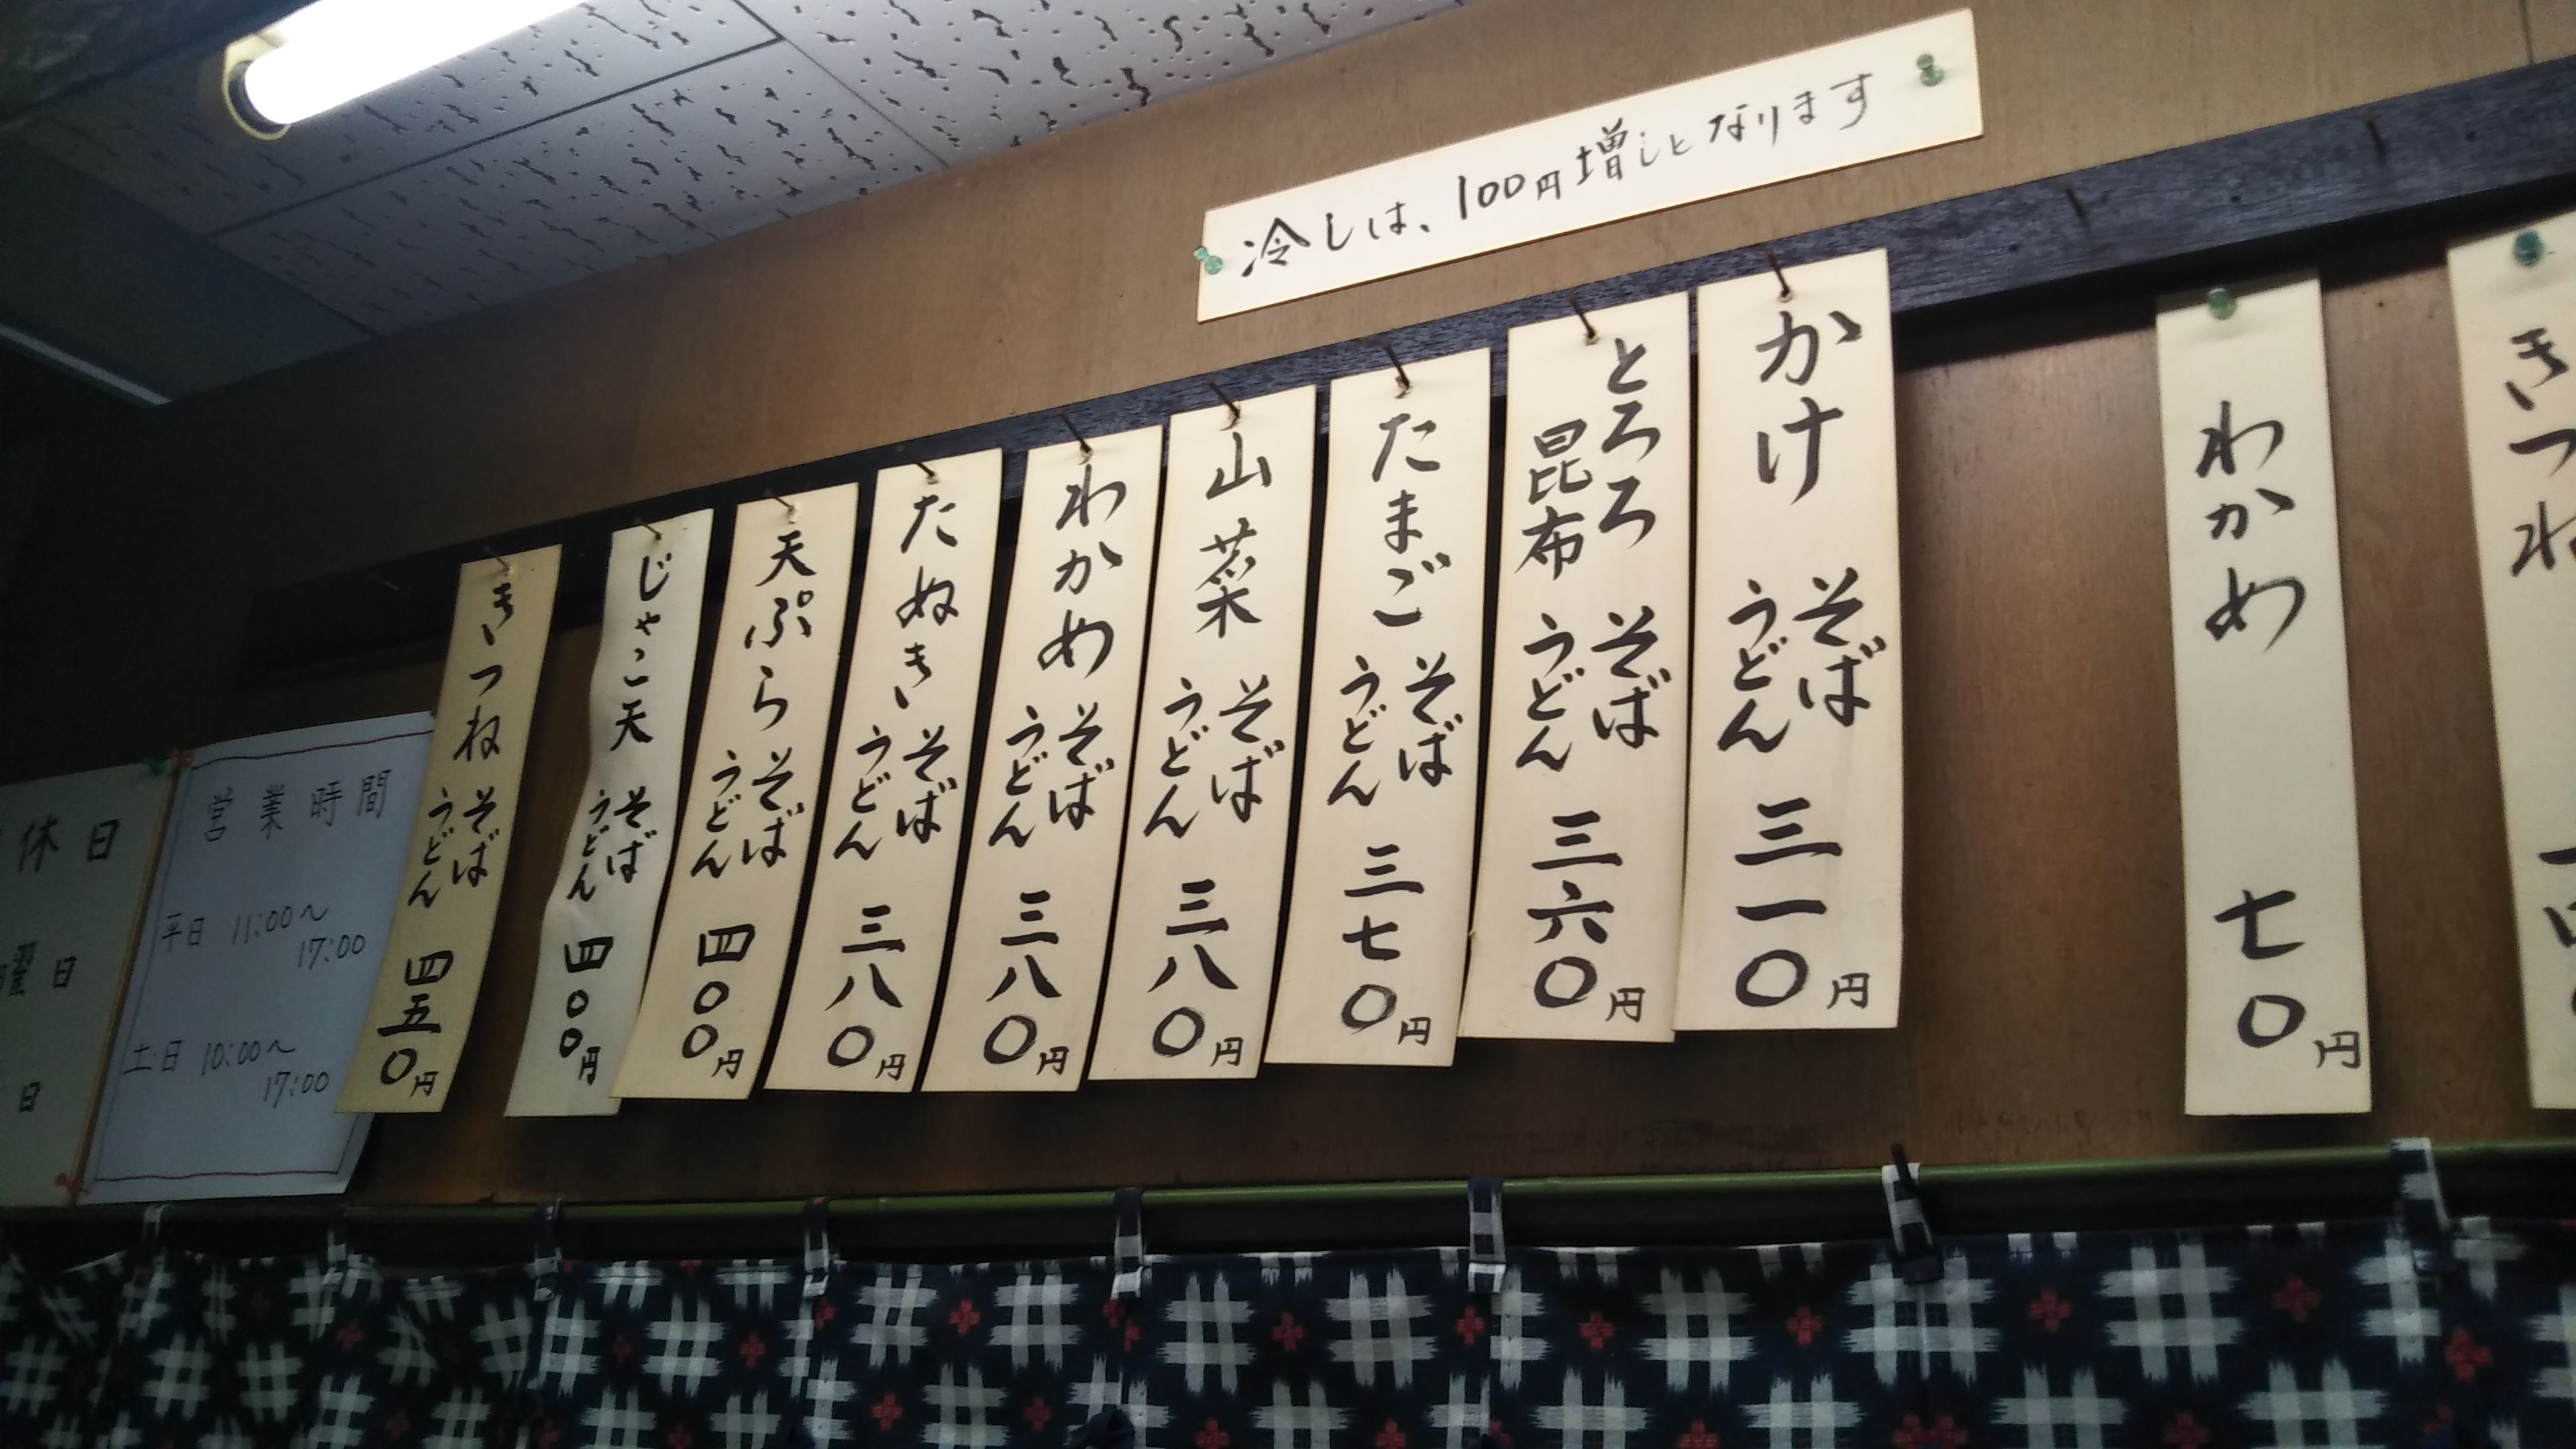 冷しは、100円増しとなります
きつね
わかめ 七〇円
かけ そば うどん 三一〇円
とろろ昆布 そば うどん 三六〇円
たまご そば うどん 三七〇円
山菜 そば うどん 三八〇円
わかめ そば うどん 三八〇円
たぬき そば うどん 三八〇円
天ぷら そば うどん 四〇〇円
じゃこ天 そば うどん 四〇〇円
きつね そば うどん 四五〇円
営業時間
平日 11:00～
17:00
土・日 10:00～
17:00
休日
曜日
日